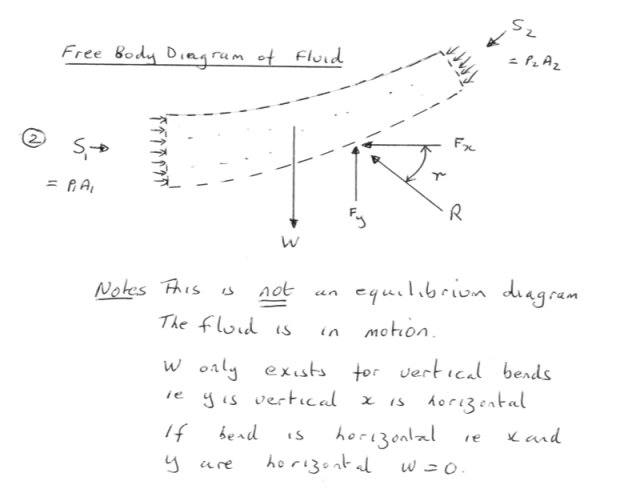 Free Body Diagram of Fluid
S₂
= P₂A₂
② S₁
= P₁A₁
Fx
r
Fy
R
W
Notes This is not an equilibrium diagram
The fluid is in motion.
W only exists for vertical bends
ie y is vertical x is horizontal
If bend is horizontal ie x and
y are horizontal W = 0.